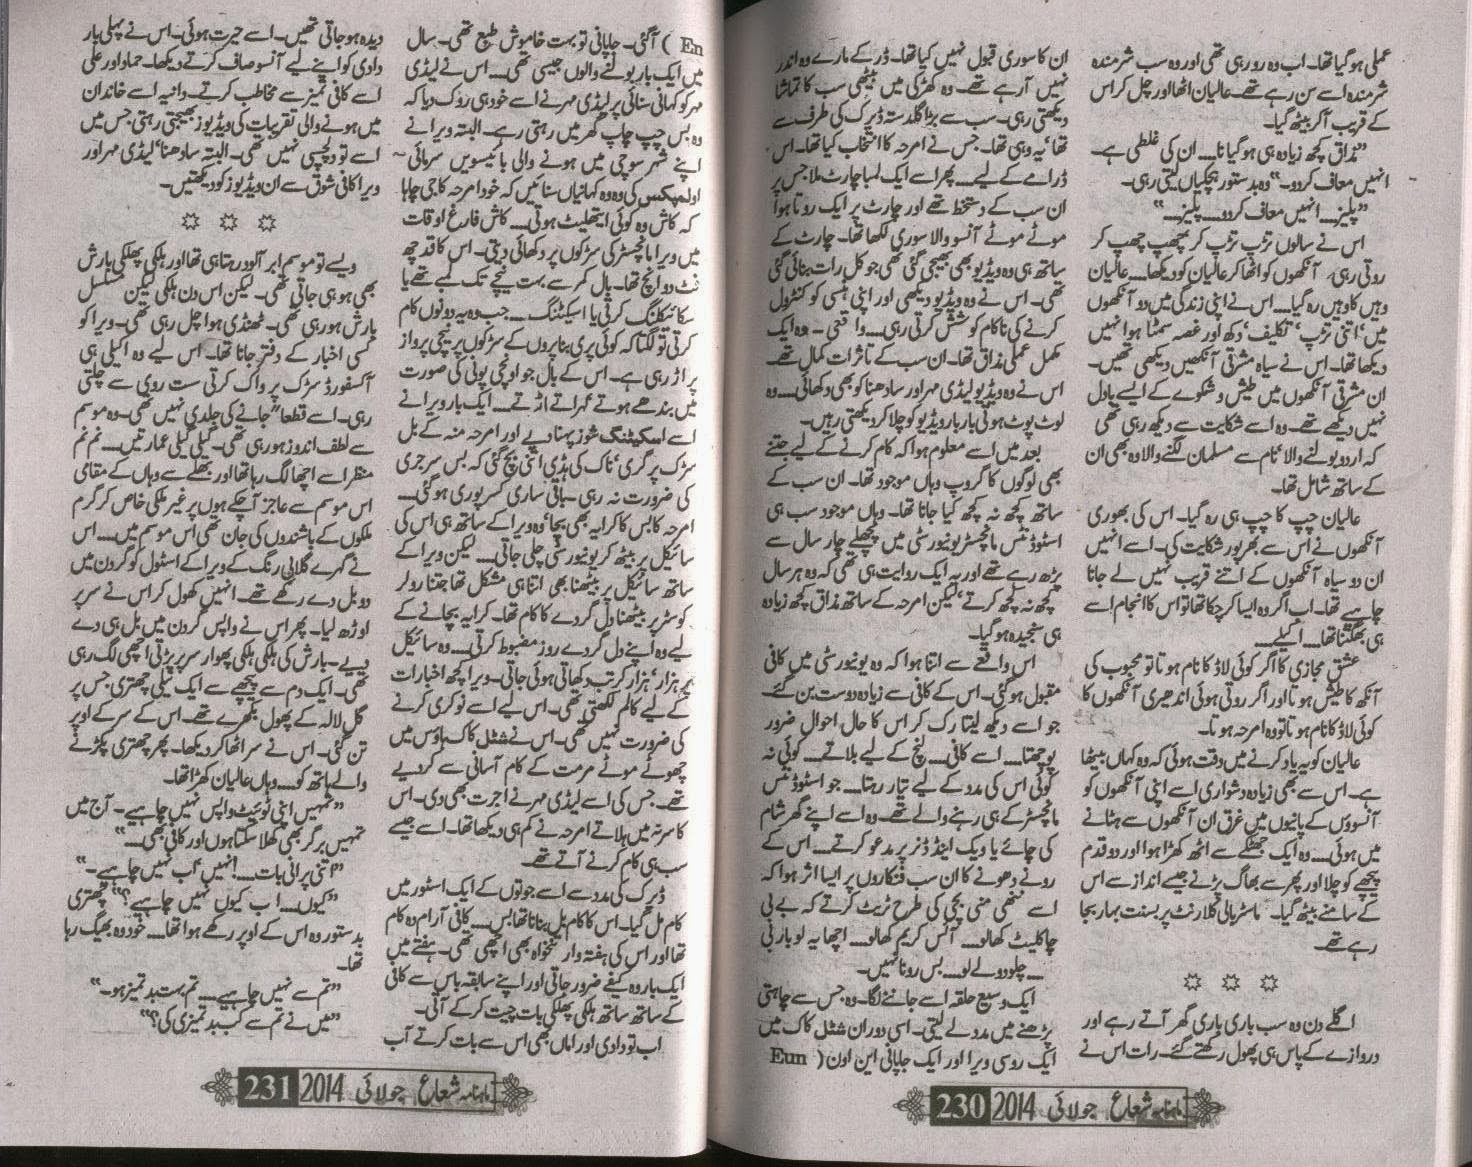 عملی ہو گیا تھا۔ اب وہ رو رہی تھی اور وہ سب شرمندہ
شرمندہ اسے سن رہے تھے۔ عالیان اٹھا اور چل کر اس
کے قریب آکر بیٹھ گیا۔
”مذاق کچھ زیادہ ہی ہو گیا نا۔۔۔۔ ان کی غلطی ہے۔
انہیں معاف کر دو۔“ وہ بدستور ہچکیاں لیتی رہی۔
”پلیز۔۔۔۔ انہیں معاف کر دو۔۔۔۔ پلیز۔۔۔۔“
اس نے سالوں تڑپ تڑپ کر چھپ چھپ کر
روتی رہی آنکھوں کو اٹھا کر عالیان کو دیکھا۔۔۔۔ عالیان
وہیں کا وہیں رہ گیا۔۔۔۔ اس نے اپنی زندگی میں دو آنکھوں
میں ’اتنی تڑپ‘ تکلیف‘ دکھ اور غصہ سمٹا ہوا نہیں
دیکھا تھا۔ اس نے سیاہ مشرقی آنکھیں دیکھی تھیں۔
ان مشرقی آنکھوں میں طیش و شکوے کے ایسے بادل
نہیں دیکھے تھے۔ وہ اسے شکایت سے دیکھ رہی تھی
کہ اردو بولنے والا‘ نام سے مسلمان لگنے والا وہ بھی ان
کے ساتھ شامل تھا۔
عالیان چپ کا چپ ہی رہ گیا۔ اس کی بھوری
آنکھوں نے اس سے بھرپور شکایت کی۔ اسے انہیں
ان دو سیاہ آنکھوں کے اتنے قریب نہیں لے جانا
چاہیے تھا۔ اب اگر وہ ایسا کر چکا تھا تو اس کا انجام اسے
ہی بھگتنا تھا۔۔۔۔ اکیلے۔۔۔۔
عشق مجازی کا اگر کوئی لاڈ کا نام ہوتا تو محبوب کی
آنکھ کا طیش ہوتا اور اگر روتی ہوئی اندھیری آنکھوں کا
کوئی لاڈ کا نام ہوتا تو وہ امرحہ ہوتا۔
عالیان کو یہ یاد کرنے میں دقت ہوئی کہ وہ کہاں بیٹھا
ہے۔ اس سے بھی زیادہ دشواری اسے اپنی آنکھوں کو
آنسوؤں کے پانیوں میں غرق ان آنکھوں سے ہٹانے
میں ہوئی۔۔۔۔ وہ ایک جھٹکے سے اٹھ کھڑا ہوا اور دو قدم
پیچھے کو چلا اور پھر سے بھاگ پڑنے جیسے انداز سے اس
کے سامنے بیٹھ گیا۔ ماسٹر بالی کلارنٹ پر بسنت بہار بجا
رہے تھے۔
اگلے دن وہ سب باری باری گھر آتے رہے اور
دروازے کے پاس ہی پھول رکھتے گئے۔ رات اس نے
ان کا سوری قبول نہیں کیا تھا۔ ڈر کے مارے وہ اندر
نہیں آرہے تھے۔ وہ کھڑکی میں بیٹھی سب کا تماشا
دیکھتی رہی۔ سب سے بڑا گلدستہ ڈیرک کی طرف سے
تھا‘ یہ وہی تھا۔ جس نے امرحہ کا انتخاب کیا تھا۔ اس
ڈرامے کے لیے۔۔۔۔ پھر اسے ایک لمبا چارٹ ملا جس پر
ان سب کے دستخط تھے اور چارٹ پر ایک روتا ہوا
موٹے موٹے آنسو والا سوری لکھا تھا۔ چارٹ کے
ساتھ ہی وہ ویڈیو بھی بھیجی گئی تھی جو کل رات بنائی گئی
تھی۔ اس نے وہ ویڈیو دیکھی اور اپنی ہنسی کو کنٹرول
کرنے کی ناکام کوشش کرتی رہی۔۔۔۔ واقعی۔ وہ ایک
مکمل عملی مذاق تھا۔ ان سب کے تاثرات کمال تھے۔
اس نے وہ ویڈیو لیڈی مہر اور سادھنا کو بھی دکھائی۔۔۔۔ وہ
لوٹ پوٹ ہوتی بار بار ویڈیو کو چلا کر دیکھتی رہیں۔
بعد میں اسے معلوم ہوا کہ کام کرنے کے لیے جتنے
بھی لوگوں کا گروپ وہاں موجود تھا۔ ان سب کے
ساتھ کچھ نہ کچھ کیا جاتا تھا۔ وہاں موجود سب ہی
اسٹوڈنٹس مانچسٹر یونیورسٹی میں پچھلے چار سال سے
پڑھ رہے تھے اور یہ ایک روایت ہی تھی کہ وہ ہر سال
کچھ نہ کچھ کرتے‘ لیکن امرحہ کے ساتھ مذاق کچھ زیادہ
ہی سنجیدہ ہو گیا۔
اس واقعے سے اتنا ہوا کہ وہ یونیورسٹی میں کافی
مقبول ہو گئی۔ اس کے کافی سے زیادہ دوست بن گئے۔
جو اسے دیکھ لیتا رک کر اس کا حال احوال ضرور
پوچھتا۔۔۔۔ اسے کافی۔۔۔۔ لنچ کے لیے بلاتے۔۔۔۔ کوئی نہ
کوئی اس کی مدد کے لیے تیار رہتا۔۔۔۔ جو اسٹوڈنٹس
مانچسٹر کے ہی رہنے والے تھے۔ وہ اسے اپنے گھر شام
کی چائے یا ویک اینڈ ڈنر پر مدعو کرتے۔۔۔۔ اس کے
رونے دھونے کا ان سب فنکاروں پر ایسا اثر ہوا کہ
اسے ننھی منی بچی کی طرح ٹریٹ کرتے کہ بے بی
چاکلیٹ کھالو۔۔۔۔ آئس کریم کھالو۔۔۔۔ اچھا یہ لو باربی
۔۔۔۔ چلو دو لے لو۔۔۔۔ بس رونا نہیں۔
ایک وسیع حلقہ اسے جاننے لگا۔ وہ جس سے چاہتی
پڑھنے میں مدد لے لیتی۔ اسی دوران شٹل کاک میں
ایک روسی ویرا اور ایک جاپانی این اون ( Eun
ماہنامہ شعاع جولائی 2014 230
En ) آگئی۔ جاپانی تو بہت خاموش طبع تھی۔ سال
میں ایک بار بولنے والوں جیسی تھی۔۔۔۔ اس نے لیڈی
مہر کو کہانی سنائی پر لیڈی مہر نے اسے خود ہی روک دیا کہ
وہ بس چپ چاپ گھر میں رہتی رہے۔ البتہ ویرا نے
اپنے شہر سوچی میں ہونے والی بائیسویں سرمائی
اولمپکس کی وہ وہ کہانیاں سنائیں کہ خود امرحہ کا جی چاہا
کہ کاش وہ کوئی ایتھلیٹ ہوتی۔۔۔۔ کاش فارغ اوقات
میں ویرا مانچسٹر کی سڑکوں پر دکھائی دیتی۔ اس کا قد چھ
فٹ دو انچ تھا۔ بال کمر سے بہت نیچے تک لمبے تھے یا
سائیکلنگ کرتی یا اسکیٹنگ۔۔۔۔ جب وہ یہ دونوں کام
کرتی تو لگتا کہ کوئی پری بنا پروں کے سڑکوں پر نیچی پرواز
پر اڑ رہی ہے۔ اس کے بال جو اونچی پونی کی صورت
میں بندھے ہوتے لہراتے اڑتے۔۔۔۔ ایک بار ویرا نے
اسے اسکیٹنگ شوز پہنا دیے اور امرحہ منہ کے بل
سڑک پر گری‘ ناک کی ہڈی اتنی بچ گئی کہ بس سرجری
کی ضرورت نہ رہی۔ باقی ساری کسر پوری ہو گئی۔۔۔۔
امرحہ کا بس کا کرایہ بھی بچا‘ وہ ویرا کے ساتھ ہی اس کی
سائیکل پر بیٹھ کر یونیورسٹی چلی جاتی۔۔۔۔ لیکن ویرا کے
ساتھ سائیکل پر بیٹھنا بھی اتنا ہی مشکل تھا جتنا رولر
کوسٹر پر بیٹھنا دل گردے کا کام تھا۔ کرایہ بچانے کے
لیے وہ اپنے دل گردے روز مضبوط کرتی۔۔۔۔ وہ سائیکل
پر ہزار‘ ہزار کرتب دکھاتی ہوئی جاتی۔ ویرا کچھ اخبارات
کے لیے کالم لکھتی تھی۔ اس لیے اسے نوکری کرنے
کی ضرورت نہیں تھی۔ اس نے شٹل کاک ہاؤس میں
چھوٹے موٹے مرمت کے کام آسانی سے کر دیے
تھے۔ جس کی اسے لیڈی مہر نے اجرت بھی دی۔ اس
کا سر نہ میں ہلاتے امرحہ نے کم ہی دیکھا تھا۔ اسے جیسے
سب ہی کام کرنے آتے تھے۔
ڈیرک کی مدد سے اسے جوتوں کے ایک اسٹور میں
کام مل گیا۔ اس کا کام بل بنانا تھا بس۔۔۔۔ کافی آرام دہ کام
تھا اور اس کی ہفتہ وار تنخواہ بھی اچھی تھی۔ ہفتے میں
ایک بار وہ کیفے ضرور جاتی اور اپنے سابقہ باس سے کافی
کے ساتھ ساتھ ہلکی پھلکی بات چیت کر کے آتی۔
اب تو دادی اور اماں بھی اس سے بات کرتے آب
دیدہ ہو جاتی تھیں۔ اسے حیرت ہوئی۔ اس نے پہلی بار
دادی کو اپنے لیے آنسو صاف کرتے دیکھا۔ حماد اور علی
اسے کافی تمیز سے مخاطب کرتے۔ دانیہ اسے خاندان
میں ہونے والی تقریبات کی ویڈیوز بھیجتی رہتی جس میں
اسے تو دلچسپی نہیں تھی۔ البتہ سادھنا‘ لیڈی مہر اور
ویرا کافی شوق سے ان ویڈیوز کو دیکھتیں۔
ویسے تو موسم ابر آلود رہتا ہی تھا اور ہلکی پھلکی بارش
بھی ہو ہی جاتی تھی۔ لیکن اس دن ہلکی لیکن مسلسل
بارش ہو رہی تھی۔ ٹھنڈی ہوا چل رہی تھی۔ ویرا کو
کسی اخبار کے دفتر جانا تھا۔ اس لیے وہ اکیلی ہی
آکسفورڈ سڑک پر واک کرتی ست روی سے چلتی
رہی۔ اسے قطعاً جانے کی جلدی نہیں تھی۔ وہ موسم
سے لطف اندوز ہو رہی تھی۔ گیلی گیلی عمارتیں۔۔۔۔ نم نم
منظر اسے اچھا لگ رہا تھا اور بھلے سے وہاں کے مقامی
اس موسم سے عاجز آچکے ہوں پر غیر ملکی خاص کر گرم
ملکوں کے باشندوں کی جان تھی اس موسم میں۔۔۔۔ اس
نے گہرے گلابی رنگ کے ویرا کے اسٹول کو گردن میں
دو بل دے رکھے تھے۔ انہیں کھول کر اس نے سر پر
اوڑھ لیا۔ پھر اس نے واپس گردن میں بل ہی دے
دیے۔ بارش کی ہلکی ہلکی پھوار سر پر پڑتی اچھی لگ رہی
تھی۔ ایک دم سے پیچھے سے ایک نیلی چھتری جس پر
گل لالہ کے پھول بکھرے تھے۔ اس کے سر کے اوپر
تن گئی۔ اس نے سر اٹھا کر دیکھا۔ پھر چھتری پکڑنے
والے ہاتھ کو۔۔۔۔ وہاں عالیان کھڑا تھا۔
”تمہیں اپنی ٹوئیٹ واپس نہیں چاہیے۔ آج میں
تمہیں برگر بھی کھلا سکتا ہوں اور کافی بھی۔۔۔۔“
”اتنی پرانی بات۔۔۔۔! نہیں‘ اب نہیں چاہیے۔“
”کیوں۔۔۔۔ اب کیوں نہیں چاہیے؟“ چھتری
بدستور وہ اس کے اوپر رکھے ہوا تھا۔۔۔۔ خود وہ بھیگ رہا
تھا۔
”تم سے نہیں چاہیے۔۔۔۔ تم بہت بدتمیز ہو۔“
”میں نے تم سے کب بدتمیزی کی؟“
ماہنامہ شعاع جولائی 2014 231